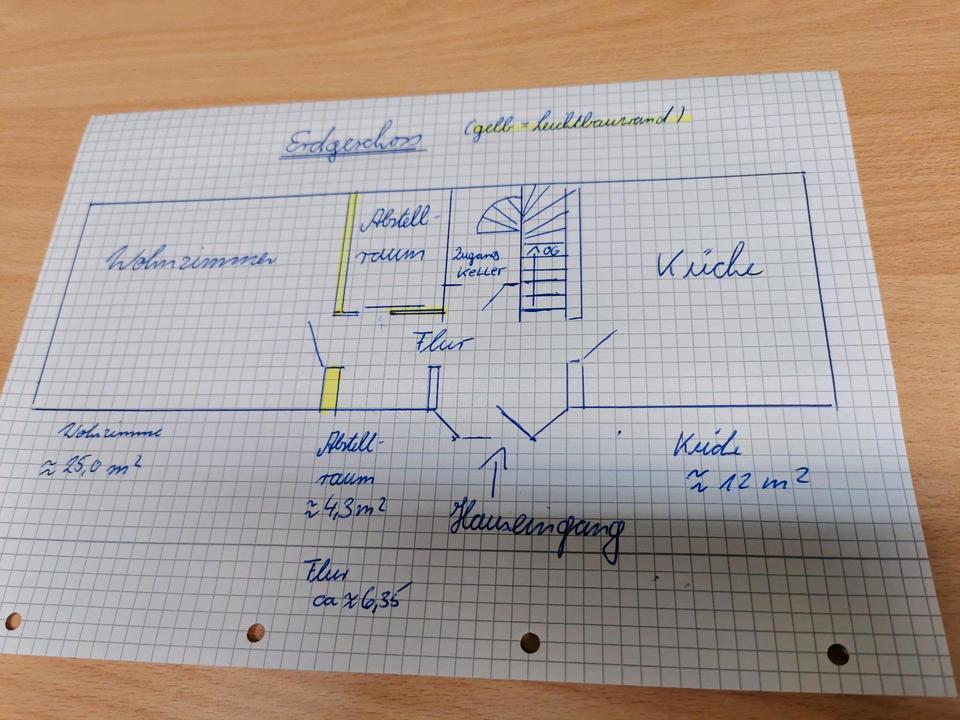 Erdgeschoss
(gelb = Leichtbauwand)
Wohnzimmer
Abstell-
raum
Zugang
Keller
OG
Küche
Flur
Wohnzimme
≈ 25,0 m²
Abstell-
raum
≈ 4,3 m²
Küche
≈ 12 m²
Hauseingang
Flur
ca ≈ 6,35